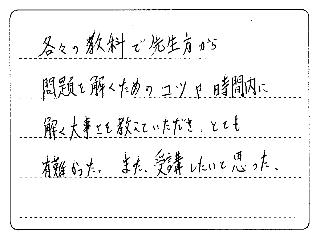 各々の教科で先生方から
問題を解くためのコツや時間内に
解く大事さを教えていただき、とても
有難かった。また、受講したいと思った。